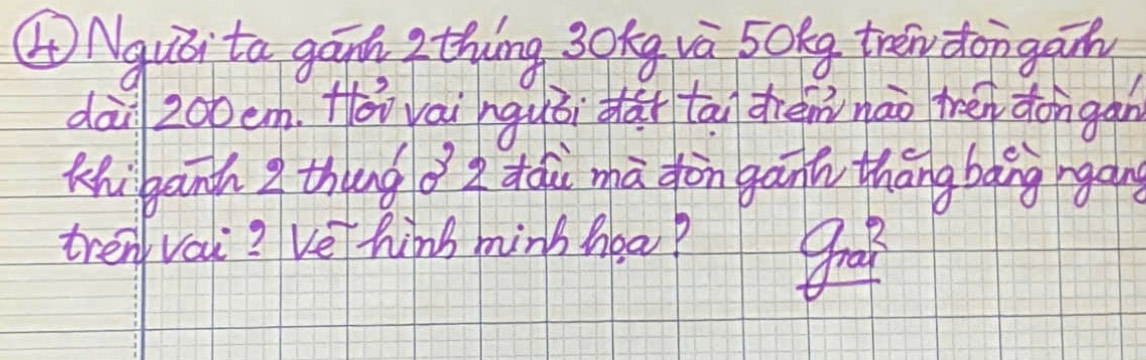 ④ Người ta gánh 2 thúng 30kg và 50kg trên đòn gánh
dài 200cm. Hỏi vai người đặt tại điểm nào trên đòn gán
khi gánh 2 thúng ở 2 đầu mà đòn gánh thẳng bằng ngang
trên vai? Vẽ hình minh họa?
Giải